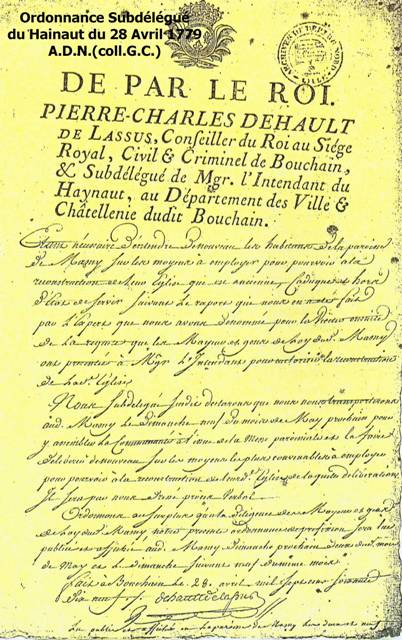 Ordonnance Subdélégué
du Hainaut du 28 Avril 1779
A.D.N.(coll.G.C.)
DE PAR LE ROI.
PIERRE-CHARLES DEHAULT
DE LASSUS, Conseiller du Roi au Siége
Royal, Civil & Criminel de Bouchain,
& Subdélégué de Mgr. l'Intendant du
Haynaut, au Département des Ville &
Châtellenie dudit Bouchain.
Etant nécessaire d'entendre de nouveau les habitans de la paroisse
de Masny sur les moyens a employer pour pourvoir a la
reconstruction de leur Eglise que est ancienne Caduque et hors
d'Etat de servir suivant le raport que nous en a été fait
par l'Expert que nous avons denommé pour la Visiter ensuite
de la requete que les Mayeur et gens de Loy dud. Masny
ont presentée a Mgr. L'Intendant pour la reconstruction
de lad. Eglise
Nous Subdelegué susdit declarons que nous nous transporterons
aud. Masny le dimanche neuf du mois de May prochain pour
y assembler la Communauté a l'issue de la Messe paroissiale et la faire
deliberer de nouveau sur les moyens les plus convenables a employer
pour pourvoir a la reconstruction de lad. Eglise de laquelle deliberation
Il sera par nous dressé procès Verbal
Ordonnons au surplus qu'a la diligence des Mayeur et gens
de Loy dud. Masny notre presente ordonnance sera lue
publiée et affichée aud. Masny dimanche prochain deux du mois
de May et le dimanche suivant neuf du meme mois
fait a Bouchain le 28 avril mil sept cent soixante
dix neuf Dehault de Lassus
publié et affiché en la paroisse de Masny